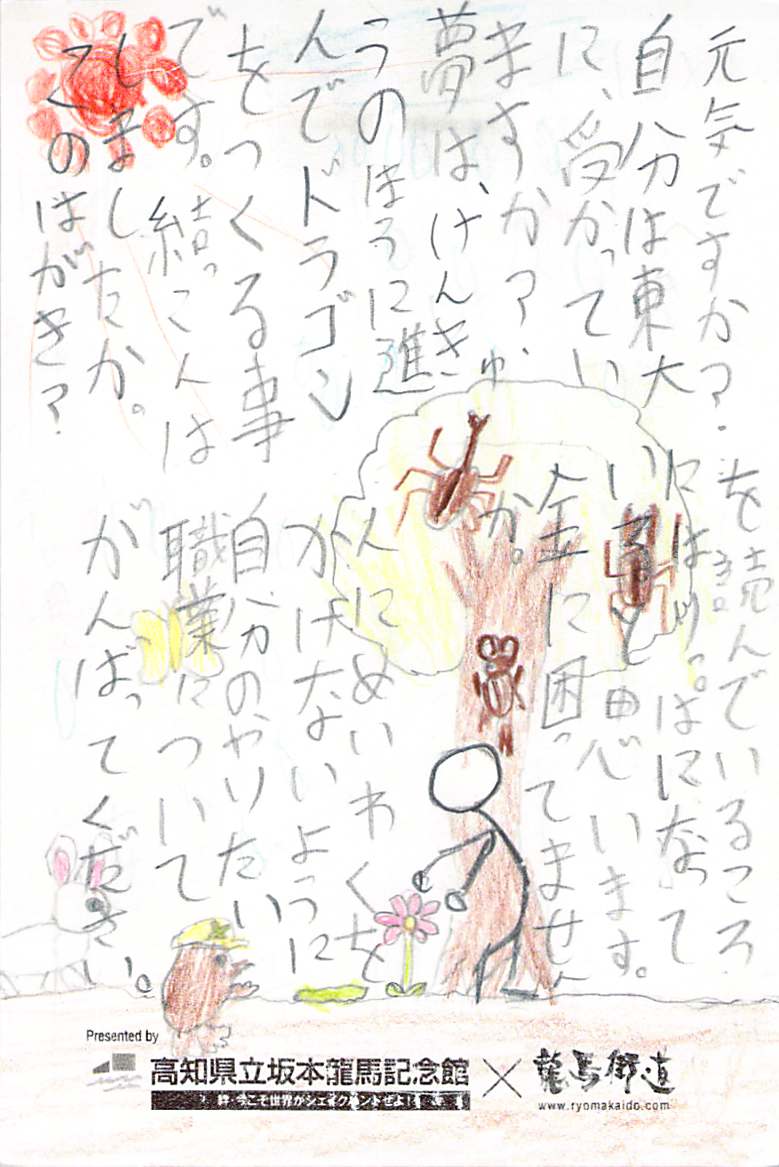 元気ですか?.
自分は東大
に、受かってい
ますか?.
夢は、けんきゅ
うのほうに進
んでドラゴン
をつくる事
です。結っこんは
しましたか。
このはがき?
を読んでいるころ
にはりっぱになって
いると思います。
金に困ってません
か。
人にめいわくを
かけないように
自分のやりたい
職業について
がんばってください。
Presented by
高知県立坂本龍馬記念館 × 龍馬街道
絆 今こそ世界がシェイクハンドぜよ!
www.ryomakaido.com